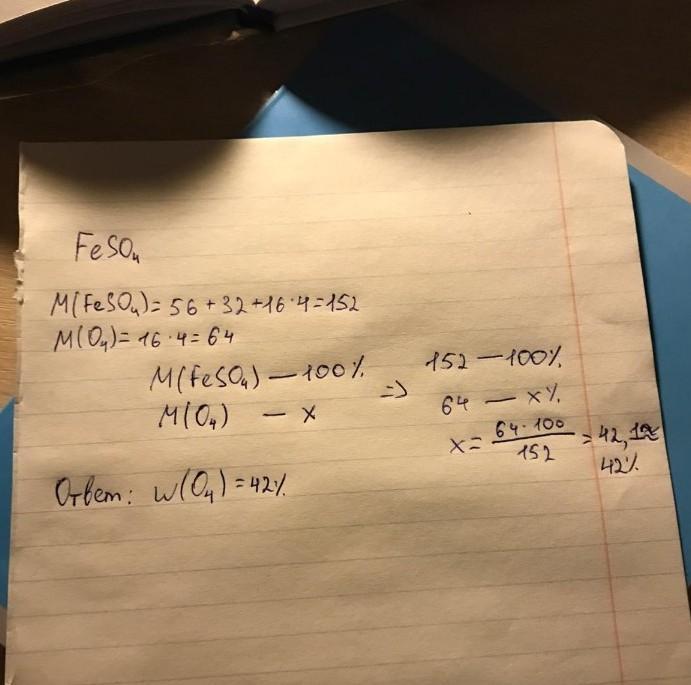 FeSO₄
M(FeSO₄)=56+32+16·4=152
M(O₄)=16·4=64
M(FeSO₄)—100%
M(O₄) — x
=>
152—100%
64 — x%
x=64·100/152=42,
42%
Ответ: w(O₄)=42%